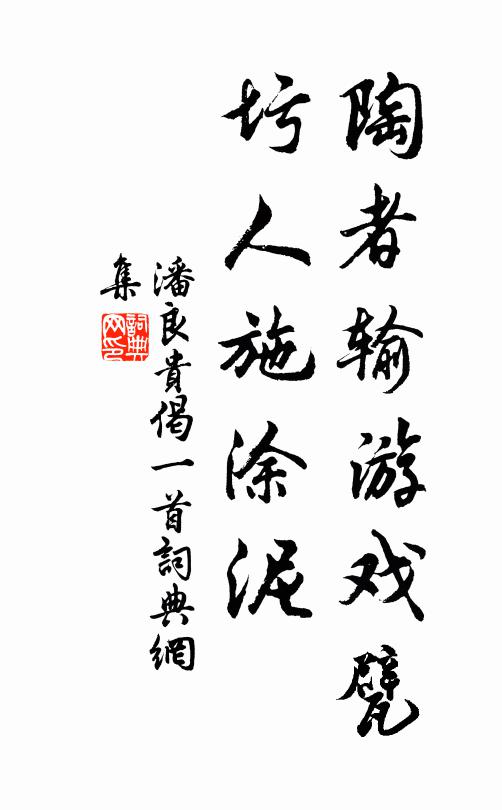 陶者输游戏甓
圬人施涂泥
潘良貴偈一首詞典網
集
詞典网印